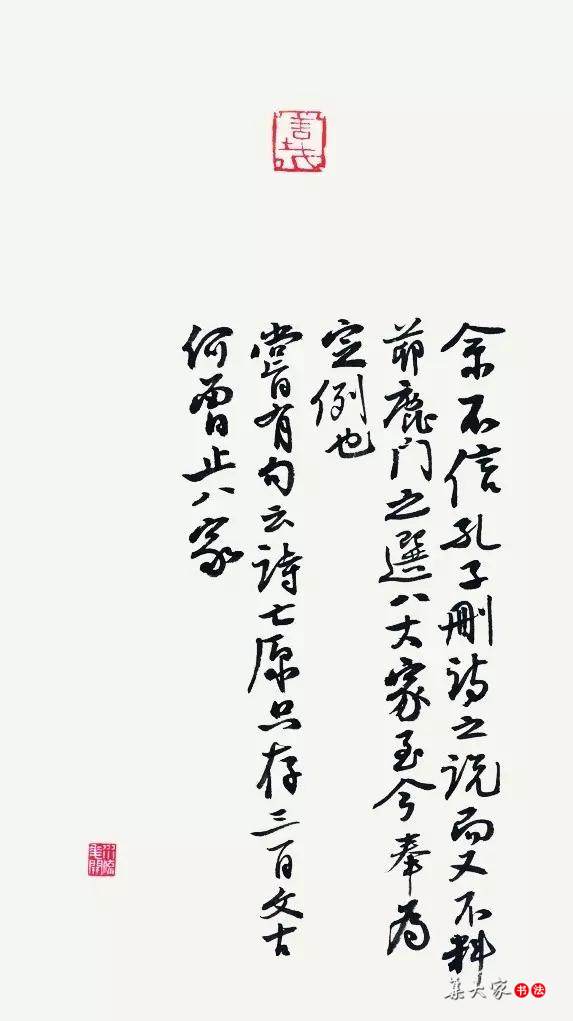 善哉
余不信孔子刪詩之说而又不料
茆鹿门之選八大家至今奉為
定例也
嘗有句云詩亡原只存三百文古
何曾止八家
集大家书法